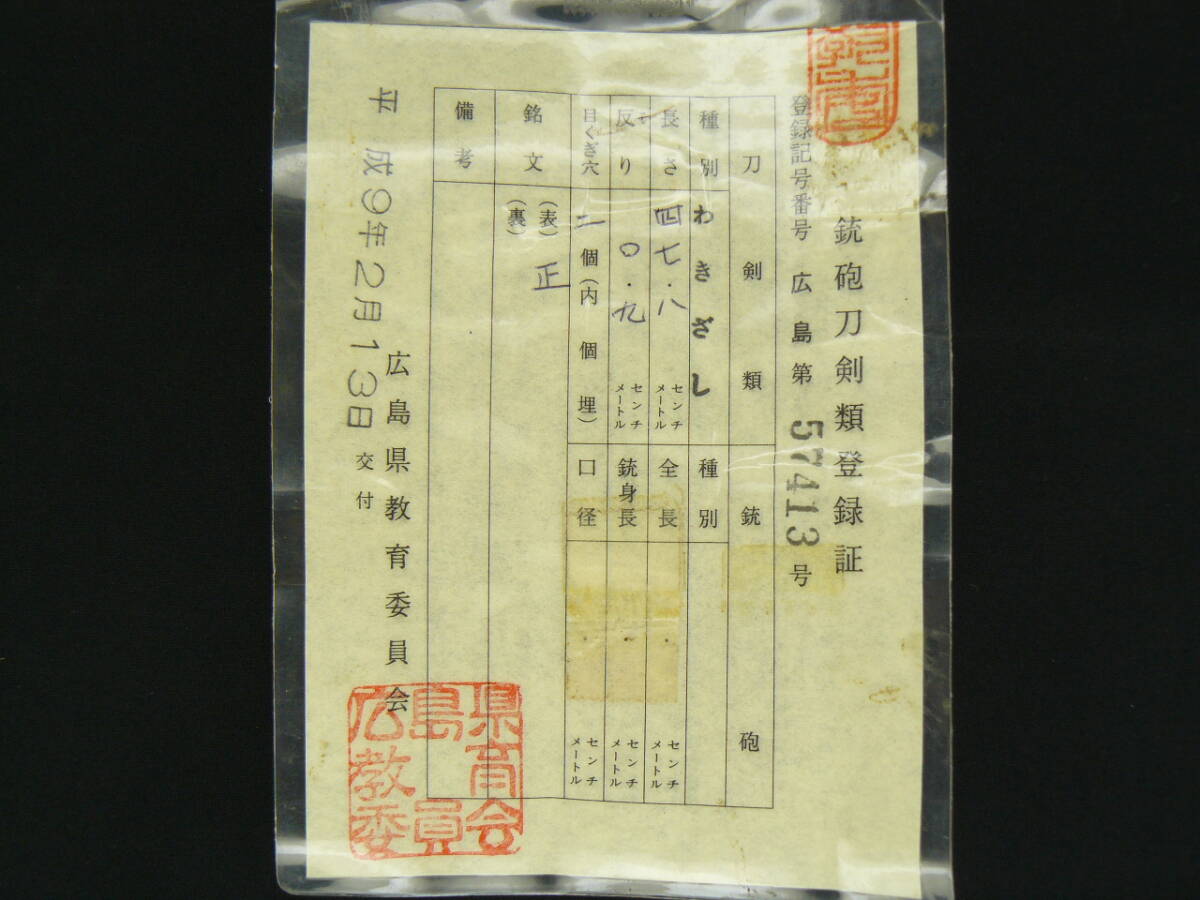 銃砲刀剣類登録証
登録記号番号 広島第 57413 号
刀剣類
銃砲
種別 わきざし
種別
長さ 四七.八 センチメートル
全長 センチメートル
反り 〇.九 センチメートル
銃身長 センチメートル
目くぎ穴 二個(内 個埋)
口径 センチメートル
銘文 (表) 正
(裏)
備考
広島県教育委員会
平成9年2月13日交付
広島県
教育
委員会